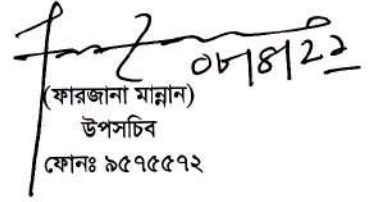 ০৮|৪|২২
(ফারজানা মান্নান)
উপসচিব
ফোনঃ ৯৫৭৫৫৭২